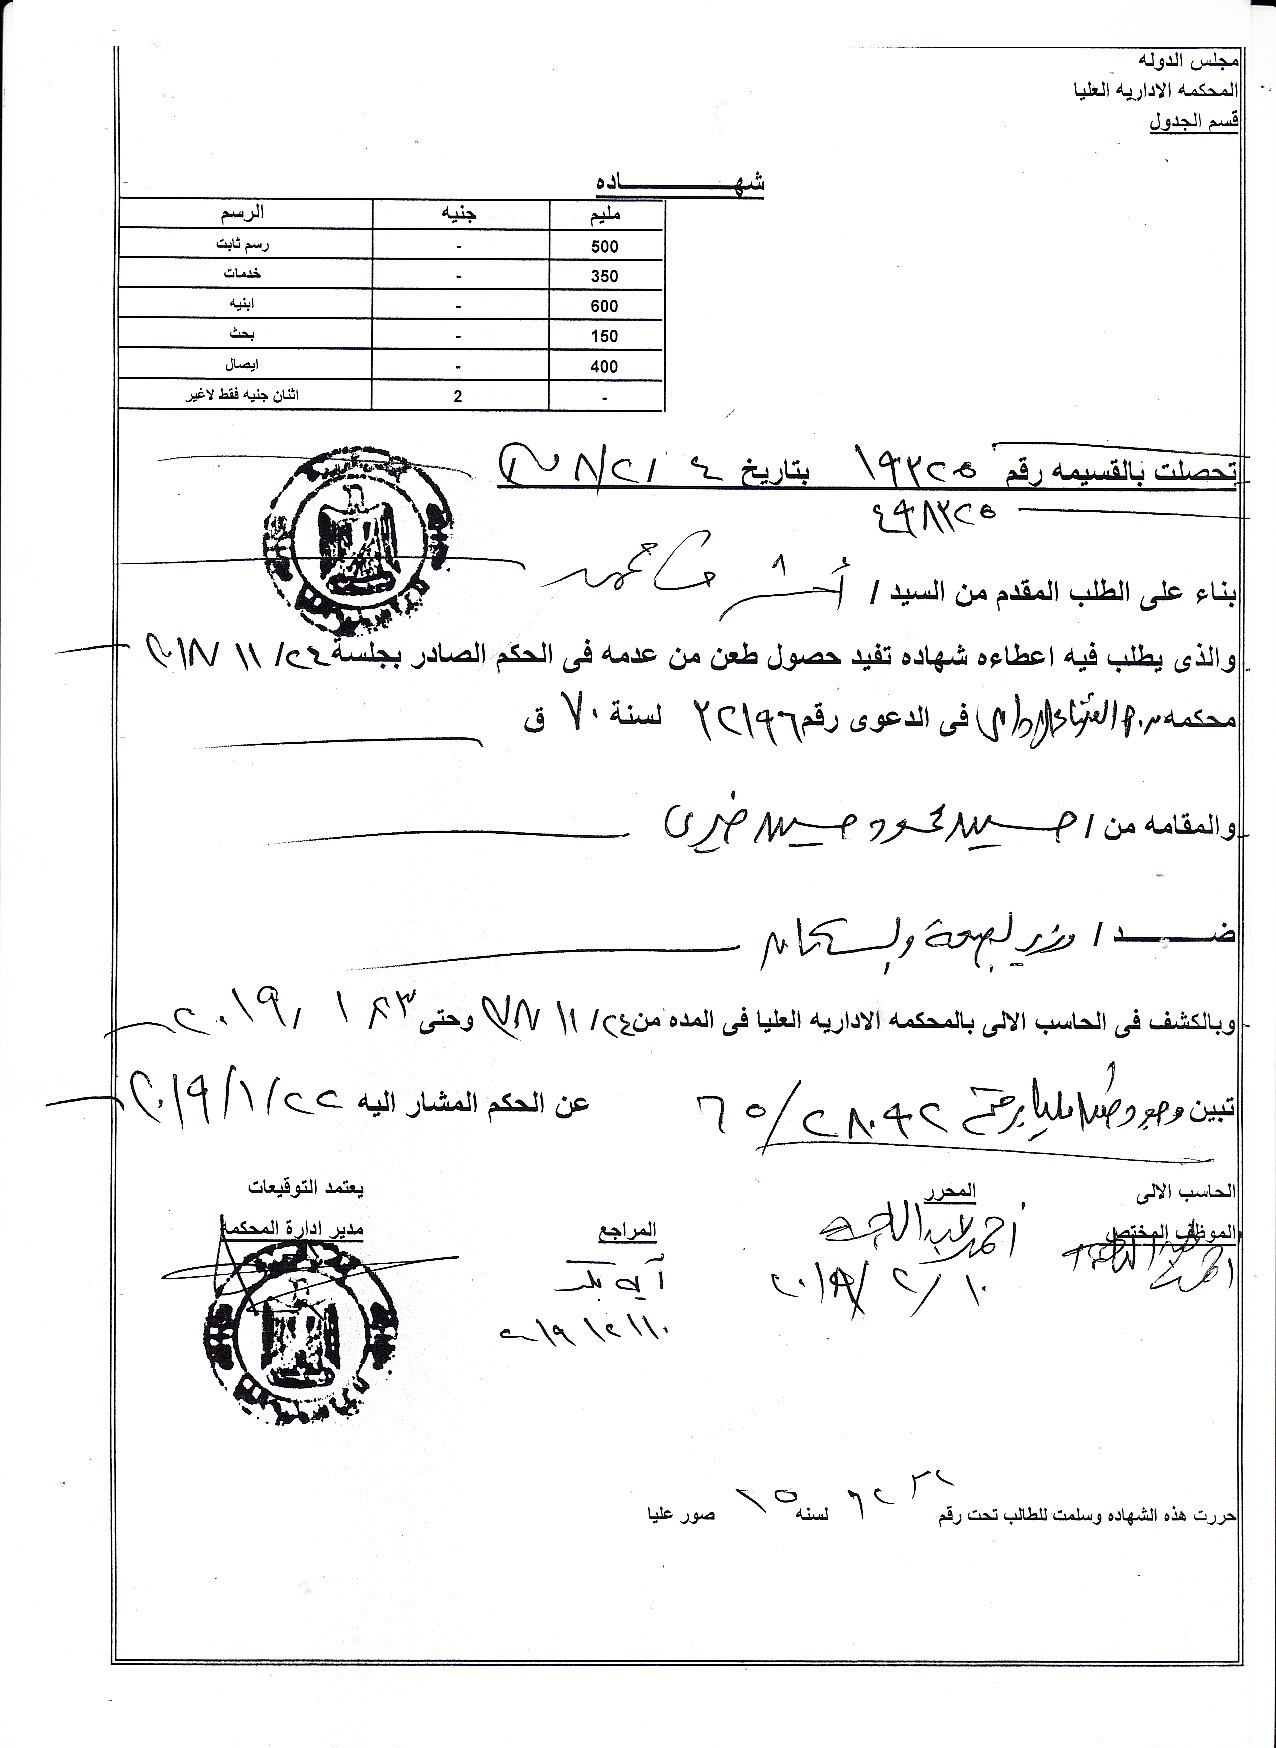 مجلس الدوله
المحكمه الاداريه العليا
قسم الجدول
شهـــــــــاده
مليم جنيه الرسم
500 - رسم ثابت
350 - خدمات
600 - ابنيه
150 - بحث
400 - ايصال
- 2 اثنان جنيه فقط لاغير
تحصلت بالقسيمه رقم ١٩٣٢٥ بتاريخ ٤
٤٩٨٣٢٥
بناء على الطلب المقدم من السيد / أشرف محمد
والذى يطلب فيه اعطاءه شهاده تفيد حصول طعن من عدمه فى الحكم الصادر بجلسة ٢٤/ ١١/ ٢٠١٨
محكمه فى الدعوى رقم ٢٢١٩٦ لسنة ٧٠ ق
والمقامه من / حسين محمود حسين خيرى
ضــــد / وزير
وبالكشف فى الحاسب الالى بالمحكمه الاداريه العليا فى المده من ٢٤/ ١١/ ٢٠١٨ وحتى ٢٣/ ١/ ٢٠١٩
تبين وجود ٢٨٠٩٢/ ٦٥ عن الحكم المشار اليه ٢٢/ ١/ ٢٠١٩
الحاسب الالى المحرر يعتمد التوقيعات
الموظف المختص أحمد عبدالله المراجع مدير ادارة المحكمة
١٠/ ٢/ ٢٠١٩ آيه بكر
١٠/ ٢/ ٢٠١٩
حررت هذه الشهاده وسلمت للطالب تحت رقم لسنه صور عليا